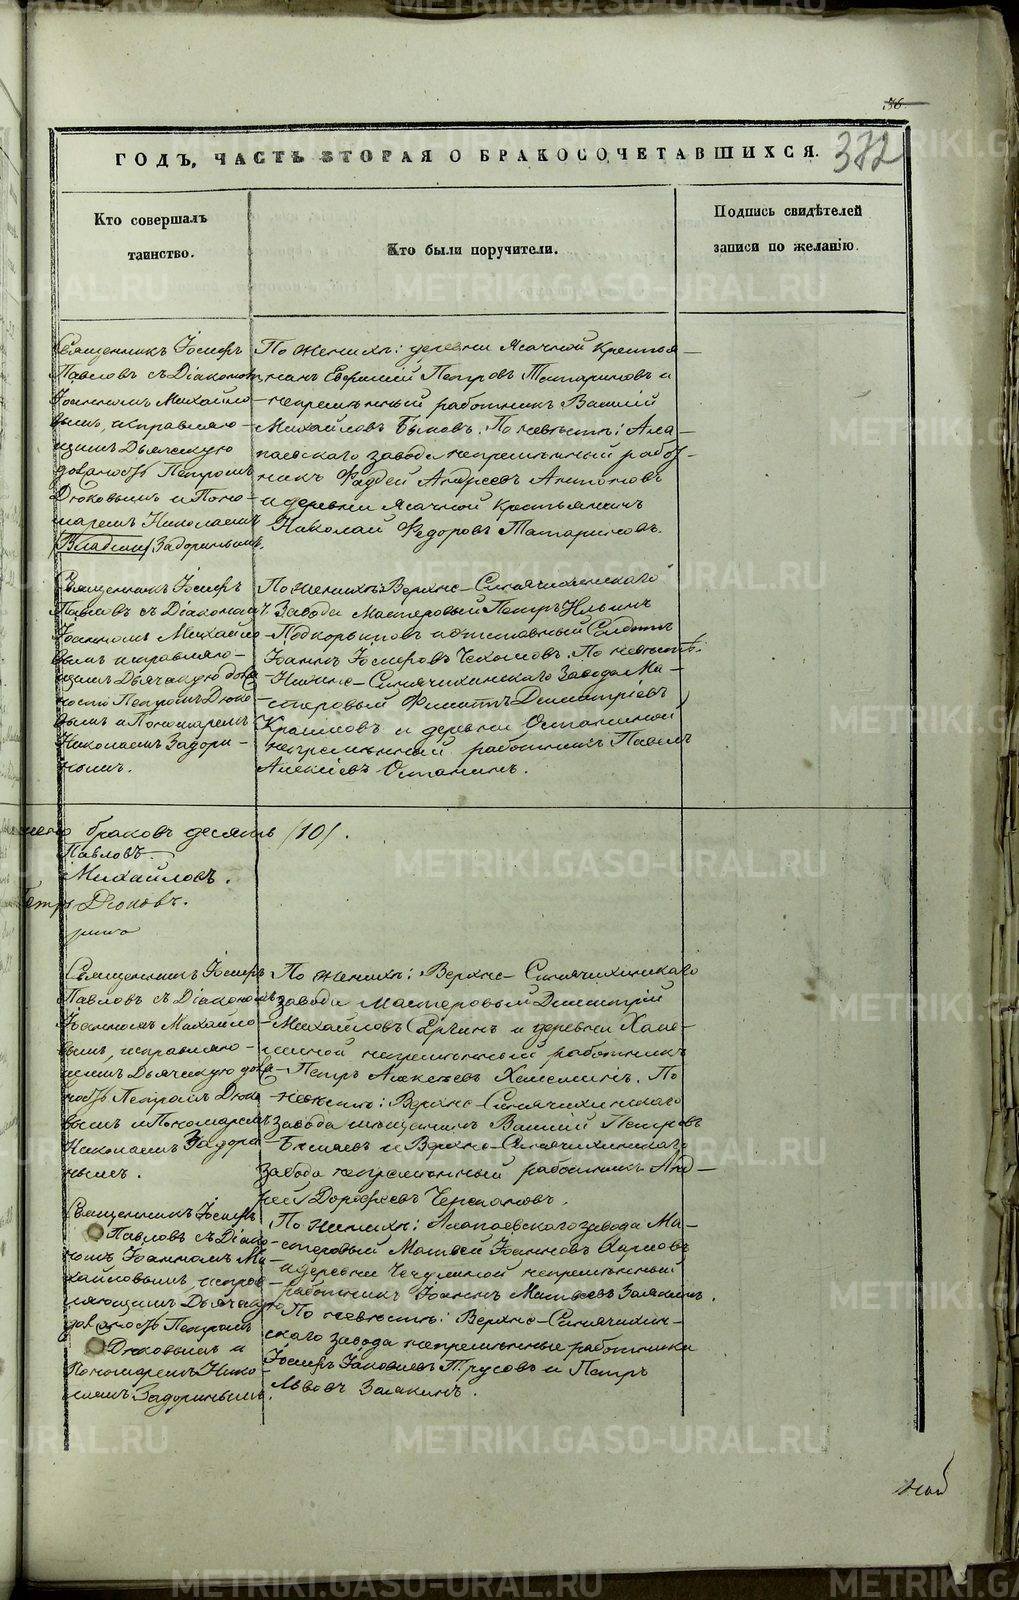 36
372
ГОДЪ, ЧАСТЬ ВТОРАЯ О БРАКОСОЧЕТАВШИХСЯ.
Кто совершалъ
таинство.
Кто были поручители.
Подпись свидѣтелей
записи по желанію.
Священникъ Іосифъ
Павловъ съ Діакономъ
Іоанномъ Михайло-
вымъ, исправляю-
щимъ Дьяческую
должность Петромъ
Дюковымъ и Поно-
маремъ Николаемъ
Задоринымъ.
По женихѣ: деревни Ясачной крестья-
нинъ Евфимій Петровъ Татариновъ и
непремѣнный работникъ Василій
Михайловъ Быковъ. По невѣстѣ: Ала-
паевскаго завода непремѣнный работ-
никъ Фаддей Андреевъ Антоновъ
и деревни Ясачной крестьянинъ
Николай Федоровъ Татариновъ.
Священникъ Іосифъ
Павловъ съ Діакономъ
Іоанномъ Михайло-
вымъ исправляю-
щимъ Дьяческую долж-
ность Петромъ Дюко-
вымъ и Пономаремъ
Николаемъ Задори-
нымъ.
По женихѣ: Верхне-Синячихинскаго
Завода Мастеровый Петръ Ильинъ
Подкорытовъ и отставный Солдатъ
Іоаннъ Іосифовъ Чехомовъ. По невѣстѣ:
Нижне-Синячихинскаго Завода Ма-
стеровый Филиппъ Димитріевъ
и деревни Останиной
непремѣнный работникъ Павелъ
Алексіевъ Останинъ.
браковъ десять (10).
Павловъ.
Михайловъ.
Петръ Дюковъ.
Священникъ Іосифъ
Павловъ съ Діакономъ
Іоанномъ Михайло-
вымъ, исправляю-
щимъ Дьяческую долж-
ность Петромъ Дюко-
вымъ и Пономаремъ
Николаемъ Задори-
нымъ.
По женихѣ: Верхне-Синячихинскаго
завода Мастеровый Димитрій
Михайловъ и деревни
непремѣнный работникъ
Петръ Алексѣевъ. По
невѣстѣ: Верхне-Синячихинскаго
завода Василій Петровъ
и Верхне-Синячихинскаго
завода непремѣнный работникъ Анд-
рей Дорофеевъ Черепановъ.
Священникъ Іосифъ
Павловъ съ Діако-
номъ Іоанномъ Ми-
хайловымъ, исправ-
ляющимъ Дьяческую
должность Петромъ
Дюковымъ и
Пономаремъ Нико-
лаемъ Задоринымъ.
По женихѣ: Алапаевскаго завода Ма-
стеровый Матвей Іоанновъ
и деревни непремѣнный
работникъ Іоаннъ Матвеевъ Заякинъ.
По невѣстѣ: Верхне-Синячихин-
скаго завода непремѣнные работники
Іосифъ Іаковлевъ Трусовъ и Петръ
Львовъ Заякинъ.
METRIKI.GASO-URAL.RU